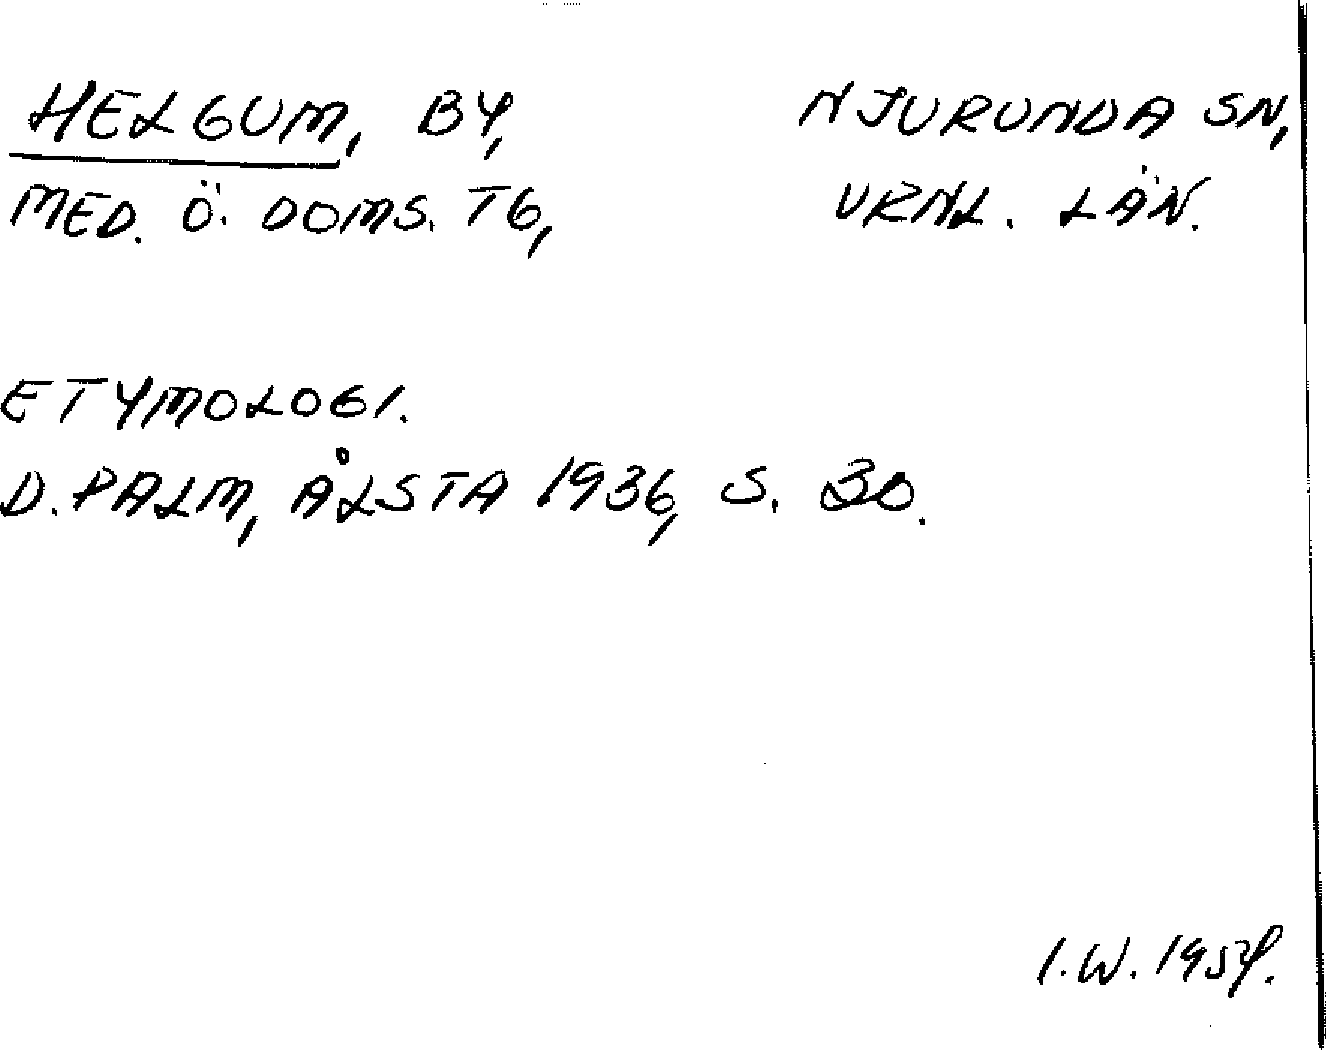 HELGUM, BY, NJURUNDA SN,
MED. Ö. DOMS. TG, VRNL. LÄN.
ETYMOLOGI.
D. PALM, ÅLSTA 1936, S. 30.
I.W.